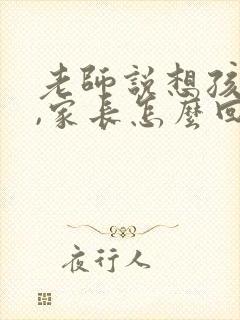 老師說想孩
,家長怎麼回
夜行人